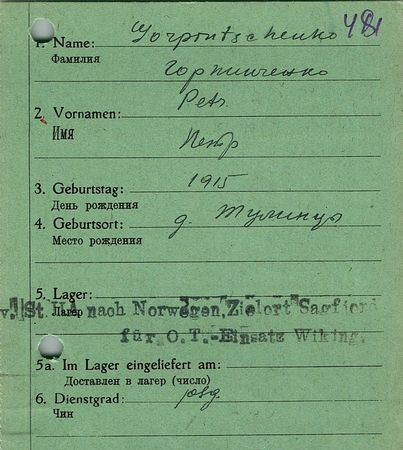 481
1. Name: Gorpintschenko
Фамилия Горпинченко
2. Vornamen: Petr
Имя Петр
3. Geburtstag: 1915
День рождения
4. Geburtsort: д.
Место рождения
5. Lager:
Лагерь
v. St. nach Norwegen, Zielort Sagfjord
für O.T.-Einsatz Wiking.
5a. Im Lager eingeliefert am:
Доставлен в лагерь (число)
6. Dienstgrad:
Чин